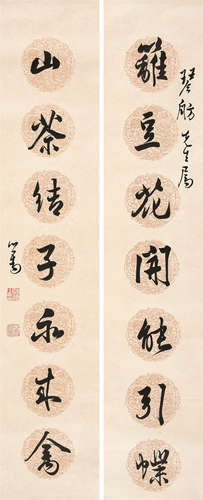 琴舫先生屬
籬豆花開能引蝶
山茶結子亦來禽
心畬